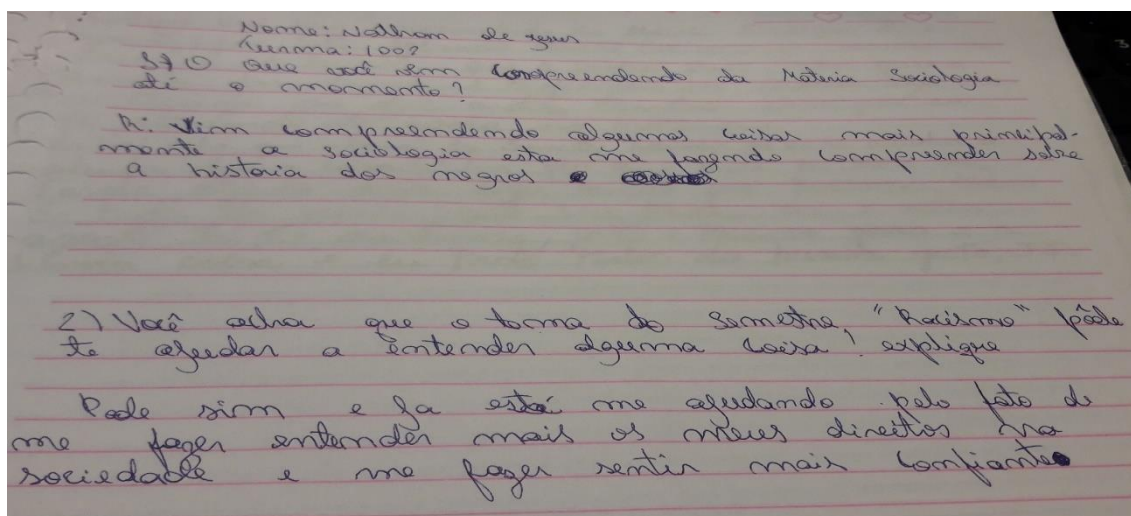 Nome: Nathan de Jesus
Turma: 1002
1) O que você vem compreendendo da Materia Sociologia
até o momento?
R: Vim compreendendo algumas coisas mais principal-
mente a sociologia esta me fazendo compreender sobre
a historia dos negros
2) Você acha que o tema do semestre, "Racismo" pôde
te ajudar a entender alguma coisa! explique
Pode sim e ja está me ajudando pelo fato de
me fazer entender mais os meus direitos na
sociedade e me fazer sentir mais confiante